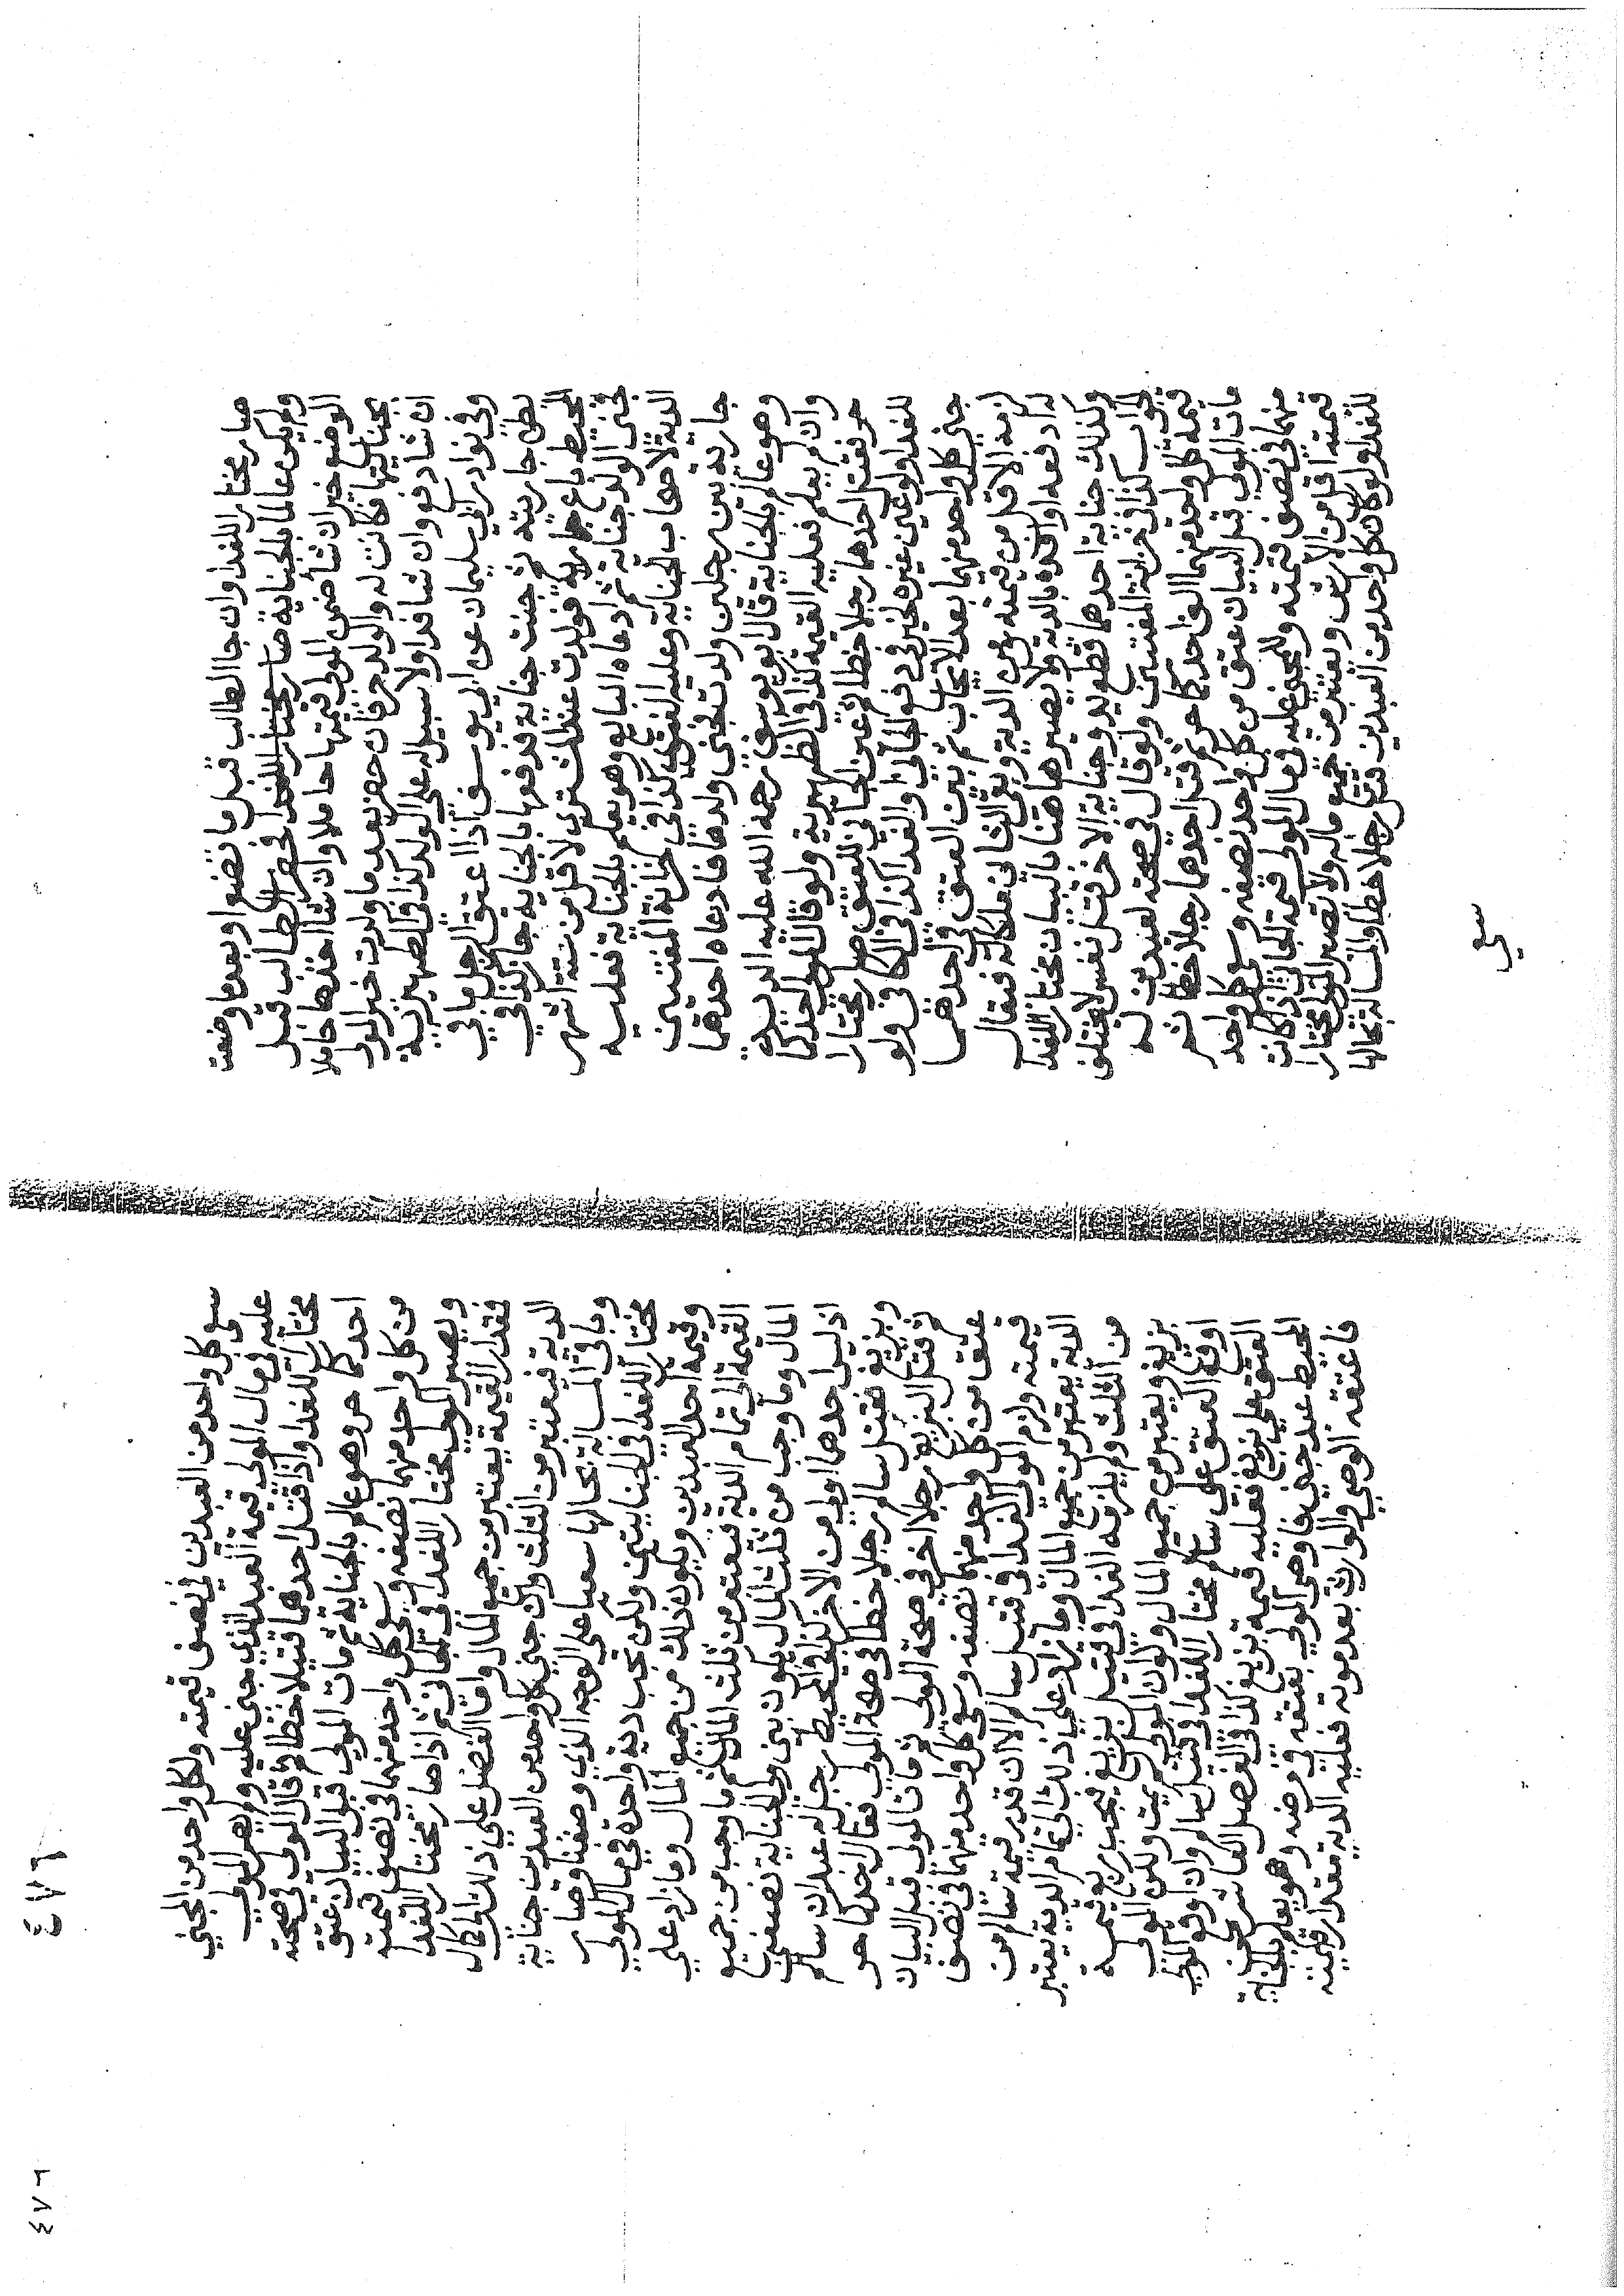 صار مختارا للفدا وان جا الطالب قبل ما تضع او بعد ما وضعت
ولم يكن عالما بالجناية صار مختارا للفدا لخصر الطالب قبل
الوضع خير ان شأ ضمن المولى قيمتها حاملا وان شا اخذها حاملا
بجنايتها فكانت له والولد حر فان حضر بعد ما ولدت خير المولى
ان شا دفع وان شا فدا ولا سبيل له على الولد كذا في الظهيرية
وفي نوادر ابي سليمان عن ابي يوسف اذا اعتق الرجل ما في
بطن جاريته ثم جنت جناية فدفعها بالجناية جاز كذا في
المحيط باع جارية فولدت عند المشتري لاقل من ستة اشهر
فجنى الولد جناية ثم ادعاه البايع وهو يعلم بالجناية فعليه
الدية لاصحاب الجناية وعليه الفتوى كذا في خزانة المفتين
جارية بين رجلين ولدت فجنى ولدها فادعاه احدهما
وهو عالم بالجناية قال ابو يوسف رحمه الله عليه الدية
وان لم يعلم فعليه القيمة كذا في الظهيرية ولو قال المولى احدكما
حر فقتل احدهما رجلا خطا ثم عين الجاني للعتق صار مختارا
للفدا ولو عين غيره خير في دفع الجاني او الفدا كذا في الكافي ولو
جنى كل واحد منهما بعد الايجاب ثم بين العتق في احدهما
لزمه الاقل من قيمته ومن الدية وبقي الثاني في ملكه فيقال
له ادفعه او افده بالدية ولا يصير هاهنا بالبيان مختارا للفدا
وكذلك جناية احدهما قطع يد وجناية الاخر قتل نفس لا يختلف
الجواب كذا في خزانة المفتين ولو قال في صحته لعبدين له
قيمة كل واحد منهما الف احدكما حر ثم قتل احدهما رجلا خطا ثم
مات المولى قبل البيان عتق من كل واحد نصفه وسعى كل واحد
منهما في نصف قيمته وللمجني عليه في مال المولى قيمة الجاني اذا كانت
قيمته اقل من الارش ويعتبر من جميع ماله ولا يصير المولى مختارا
للفدا ولو كان كل واحد من العبدين قتل رجلا خطأ والمسالة بحالها
سعى
٤٧٦
سعى كل واحد من العبدين في نصف قيمته ولكل واحد من المجني
عليه في مال المولى قيمة العبد الذي جنى عليه ولم يصر المولى
مختارا للفدا واذا قتل احدهما قتيلا خطا ثم قال المولى في صحته
احدكما حر وهو عالم بالجناية ثم مات المولى قبل البيان عتق
من كل واحد منهما نصفه وسعى كل واحد منهما في نصف قيمته
ويصير المولى مختارا للفدا في الجاني ثم اذا صار مختارا للفدا
فقدر القيمة يعتبر من جميع المال واما الفضل على ذلك الى كمال
الدية فيعتبر من الثلث وان جنى كل واحد من العبدين جناية
وباقي المسالة بحالها سعيا على الوجه الذي وصفنا وصار
مختارا للفدا في الجنايتين ولكن تجب دية واحدة في مال المولى
وقيمة احد العبدين ويكون ذلك من جميع المال وما زاد على
القيمة الى تمام الدية فيعتبر من ثلث المال ثم ما وجب من جميع
المال وما وجب من ثلث المال يكون بين وليي الجناية نصفين
اذ ليس احدهما اولى من الاخر كذا في المحيط رجل له عبدان سالم
وبزيغ فقتل سالم رجلا خطا في صحة المولى فقال احدكما حر
ثم قتل البزيغ رجلا اخر في صحة المولى ثم مات المولى قبل البيان
عتق من كل واحد منهما نصفه وسعى كل واحد منهما في نصف
قيمته ولزم المولى الفدا في قتيل سالم الا ان قدر قيمة سالم من
الدية يعتبر من جميع المال وما زاد على ذلك الى تمام الدية يعتبر
من الثلث ولم يلزمه الفدا في قتيل بزيغ فيجب
بزيغ ويعتبر من جميع المال ولو ان المولى لم يمت ولكن المولى
اوقع العتق على سالم مختارا للفدا في قتيل سالم وان اوقع المولى
العتق على بزيغ فعليه قيمة بزيغ كذا في الفصل العاشر من
المحيط عبد جنى فاوصى المولى بعتقه في مرضه وهو يعلم بالجناية
فاعتقه الوصي والوارث بعد موته فعليه الدية مقدار قيمته
٤٧٦